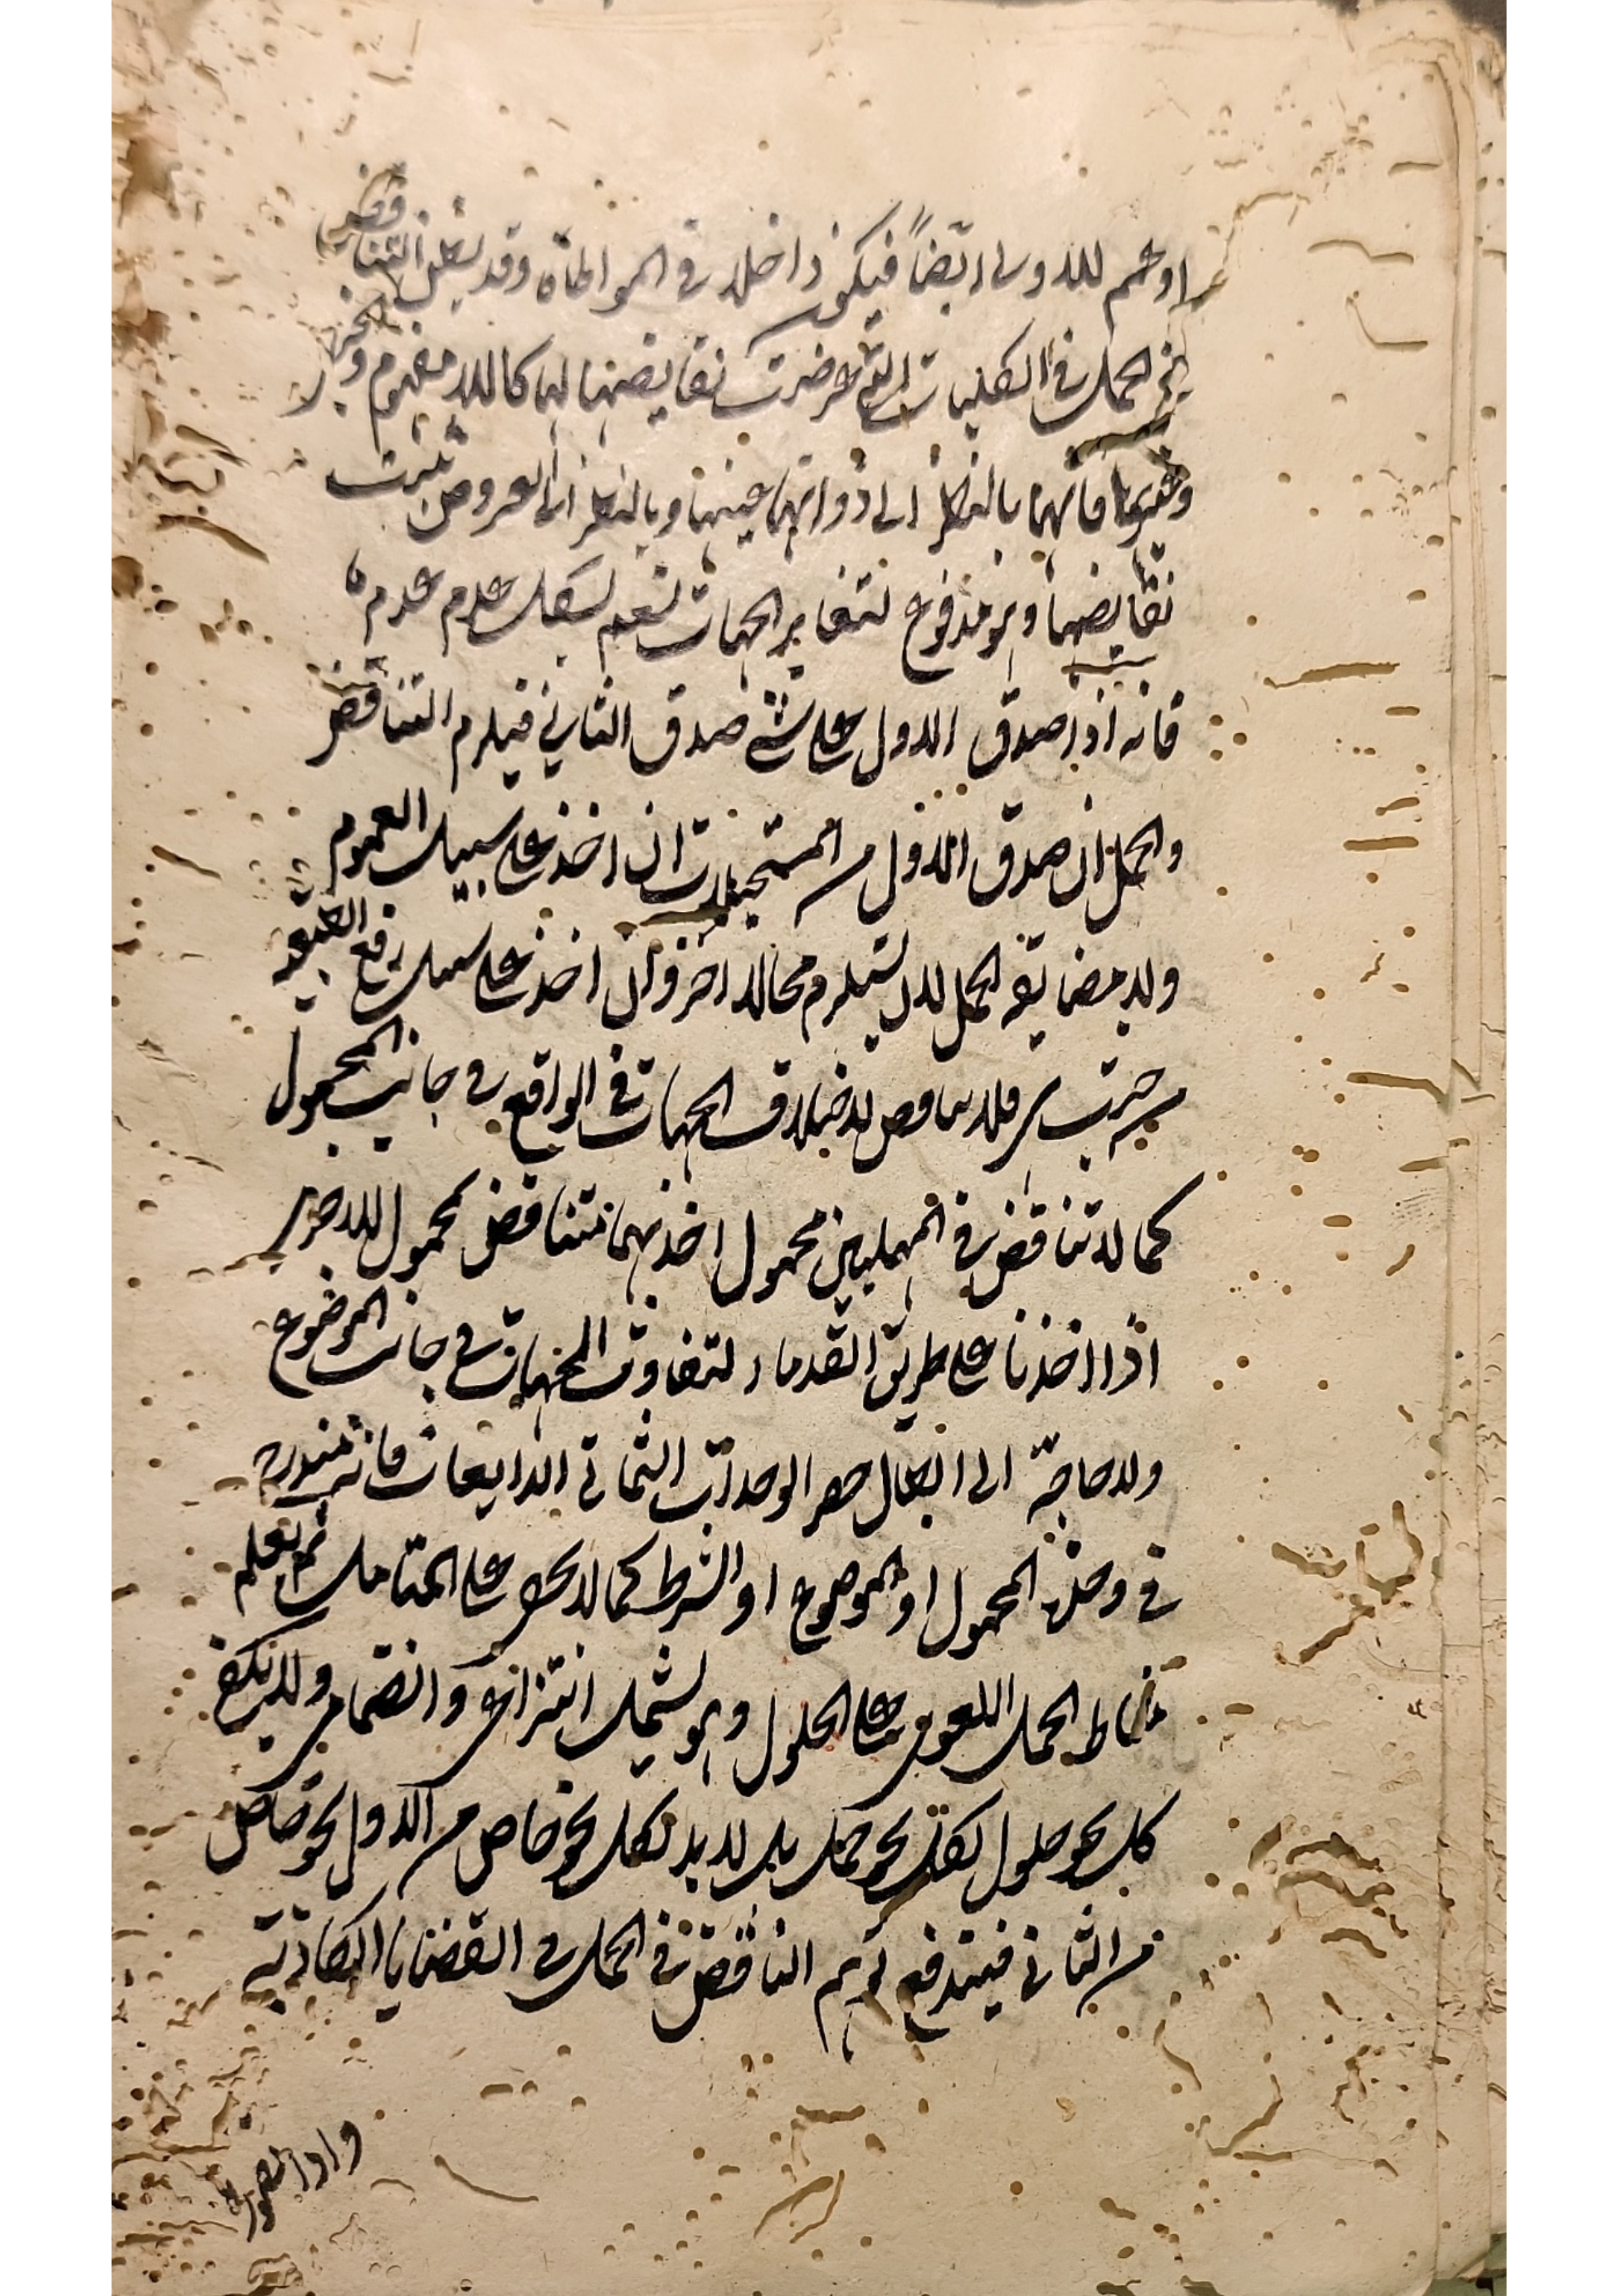 او عم للاولى ايضاً فيكون داخلا فى المواطاة وقد يشكل التناقض
فى الحمل فى الكليات التى عرضت نقايضها لها كاللا مفهوم و
وغيرها فانها بالنظر الى ذواتها عينها وبالنظر الى العروض ثبت
نقايضها وهو مدفوع لتغاير الجهات نعم يشكل عدم عدم
فانه اذا صدق الاول على شئ صدق الثانى فيلزم التناقض
والحل ان صدق الاول من المستحيلات ان اخذ على سبيل العموم
ولا مضايقة المحال لان يستلزم محالا اخر وان اخذ على سبيل رفع الطبيعة
من حيث هى فلا تناقض لاختلاف الجهات فى الواقع فى جانب المحمول
كما لا تناقض فى المهملتين محمول احدهما تناقض محمول الاخرى
اذا اخذنا على طريق القدماء لتفاوت الجهات فى جانب الموضوع
ولا حاجة الى ابطال حصر الوحدات الثمانى الذايعات فانه مندرج
فى وحدة المحمول او الموضوع او الشرط كما لا يخفى على المتامل ثم يعلم
مناط الحمل اللغوى على الحلول وهو يشمل انتزاعى وانضمامى ولا يكفى
كل نحو حلول لكل نحو حمل بل لا بد لكل نحو خاص من الاول نحو خاص
من الثانى فيندفع توهم التناقض فى الحمل فى القضايا الكاذبة
واذا